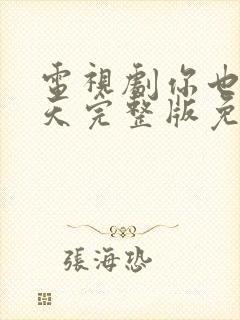 電視劇你也
天完整版免
張海恐